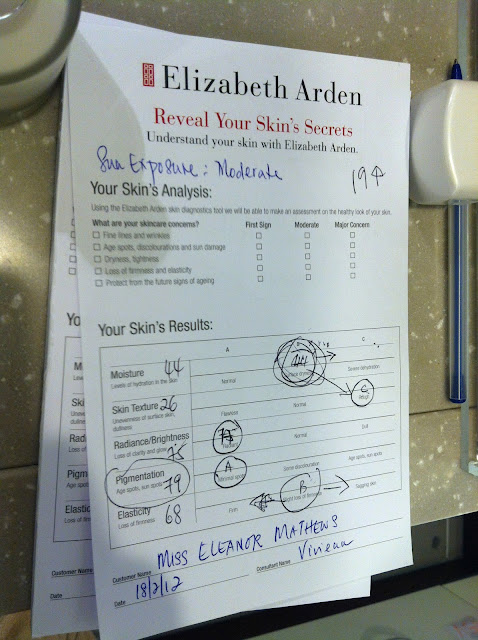 Elizabeth Arden
Reveal Your Skin's Secrets
Understand your skin with Elizabeth Arden.
Sun Exposure : Moderate
19↑
Your Skin's Analysis:
Using the Elizabeth Arden skin diagnostics tool we will be able to make an assessment on the healthy look of your skin.
What are your skincare concerns? First Sign Moderate Major Concern
Fine lines and wrinkles
Age spots, discolourations and sun damage
Dryness, tightness
Loss of firmness and elasticity
Protect from the future signs of ageing
Your Skin's Results:
A C
Moisture 44 44
Levels of hydration in the skin Normal Severe dehydration
Skin Texture 26 C
Unevenness of surface skin, dullness Flawless Normal Rough
Radiance/Brightness 75
Loss of clarity and glow 75 Radiant Normal Dull
Pigmentation 79 A
Age spots, sun spots Minimal spots Some discolouration Age spots, sun spots
Elasticity 68 B
Loss of firmness Firm Slight loss of firmness Sagging skin
MISS ELEANOR MATHEWS
Customer Name
Vivienne
Consultant Name
18/2/12
Date
Yo
Customer Name
Date